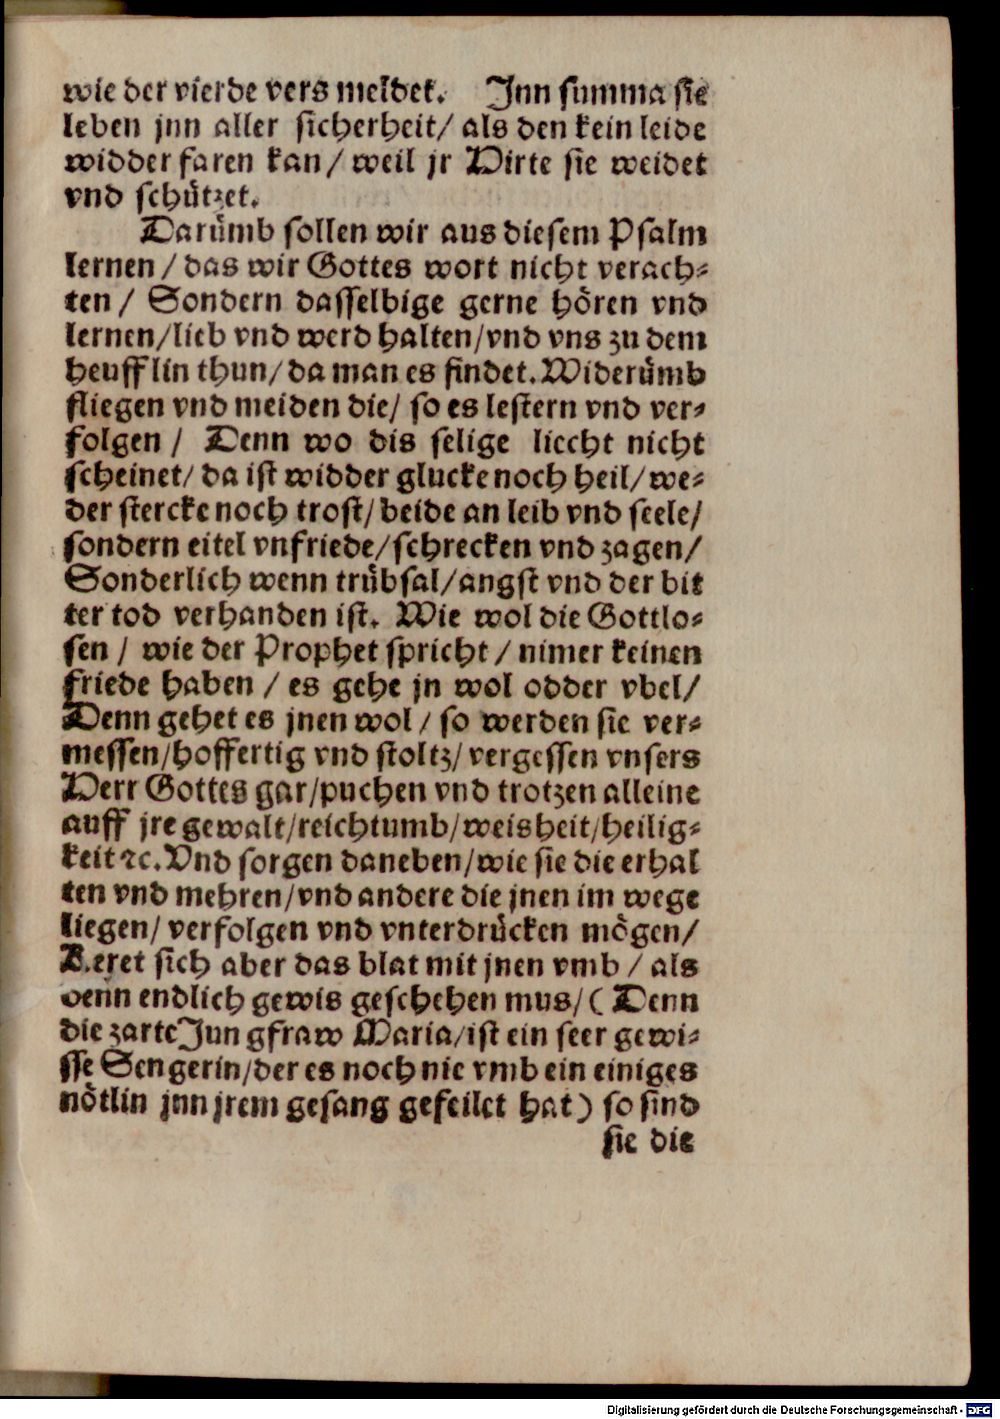 wie der vierde vers meldet. Jnn summa sie
leben jnn aller sicherheit/ als den kein leide
widder faren kan/ weil jr Hirte sie weidet
vnd schützet.
Darümb sollen wir aus diesem Psalm
lernen/ das wir Gottes wort nicht verach-
ten/ Sondern dasselbige gerne hören vnd
lernen/lieb vnd werd halten/vnd vns zu dem
heufflin thun/da man es findet. Widerümb
fliegen vnd meiden die/ so es lestern vnd ver-
folgen/ Denn wo dis selige liecht nicht
scheinet/ da ist widder glucke noch heil/ we-
der stercke noch trost/ beide an leib vnd seele/
sondern eitel vnfriede/schrecken vnd zagen/
Sonderlich wenn trübsal/angst vnd der bit
ter tod verhanden ist. Wie wol die Gottlo-
sen/ wie der Prophet spricht/ nimer keinen
friede haben/ es gehe jn wol odder vbel/
Denn gehet es jnen wol/ so werden sie ver-
messen/hoffertig vnd stoltz/ vergessen vnsers
Herr Gottes gar/puchen vnd trotzen alleine
auff jre gewalt/reichtumb/weisheit/heilig-
keit ꝛc. Vnd sorgen daneben/wie sie die erhal
ten vnd mehren/vnd andere die jnen im wege
liegen/ verfolgen vnd vnterdrücken mögen/
Keret sich aber das blat mit jnen vmb/ als
denn endlich gewis geschehen mus/(Denn
die zarte Jungfraw Maria/ist ein seer gewi-
sse Sengerin/der es noch nie vmb ein einiges
nötlin jnn jrem gesang gefeilet hat) so sind
sie die
Digitalisierung gefördert durch die Deutsche Forschungsgemeinschaft - DFG